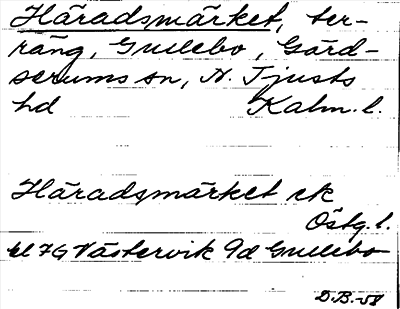 Häradsmärket, ter-
räng, Gullebo, Gärd-
serums sn, N. Tjusts
hd Kalm. l.
Häradsmärket rk
Östg. l.
bl 7G Västervik 9d Gullebo
D.B.-58